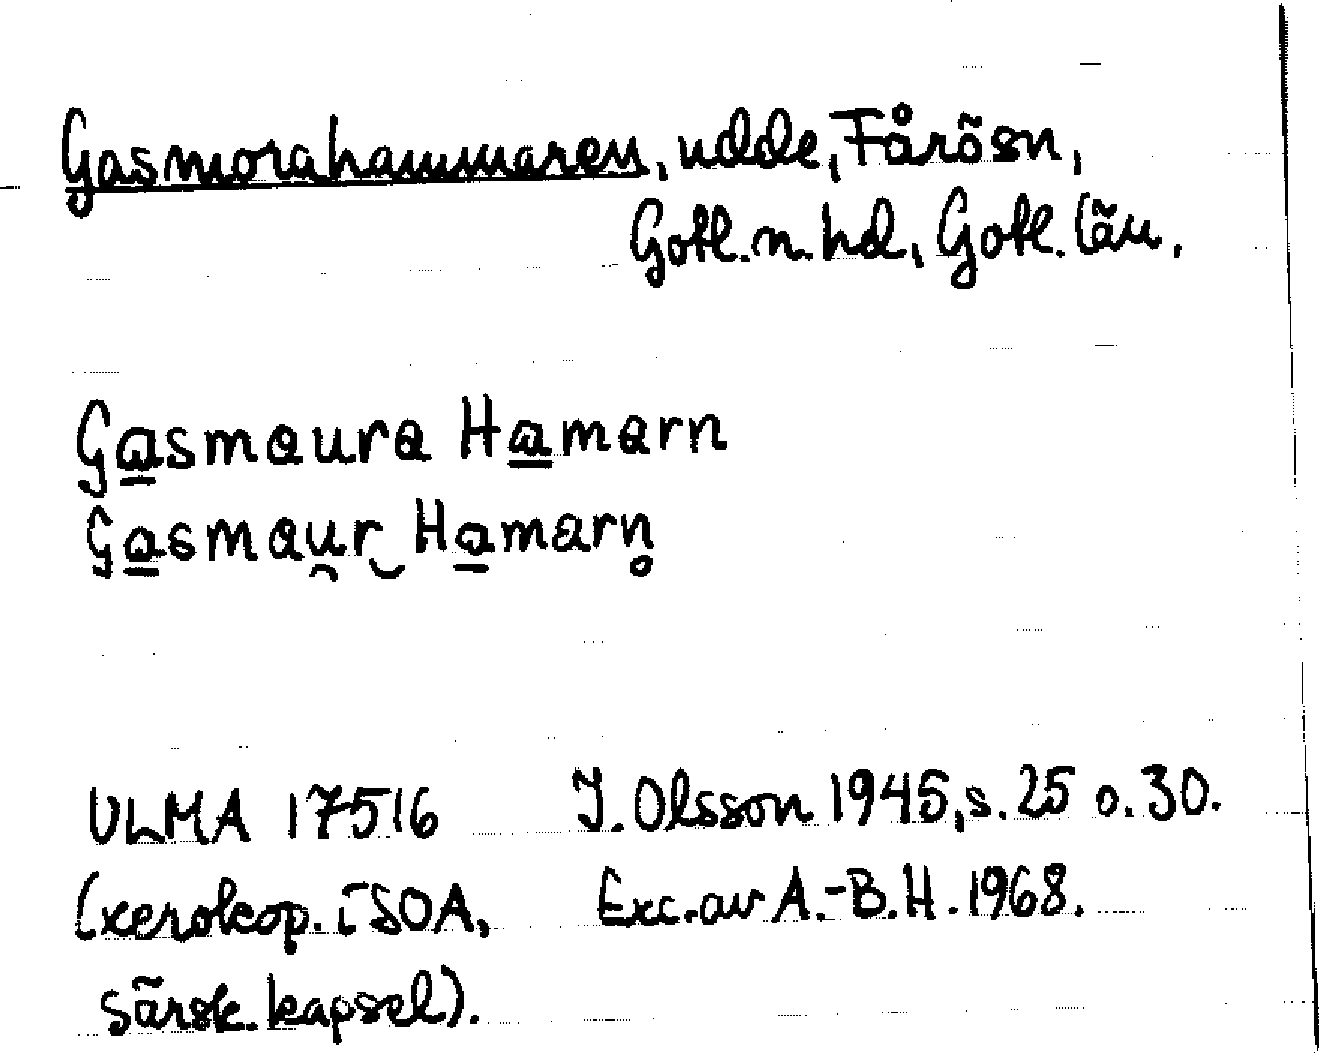 Gasmorahammaren, udde, Fårösn,
Gotl. n. hd, Gotl. län.
Gasmaura Hamarn
Gasmau̯r‿Hamarn̥
ULMA 17516 J. Olsson 1945, s. 25 o. 30.
(xerokop. i SOA, Exc. av A.-B. H. 1968.
särsk. kapsel).